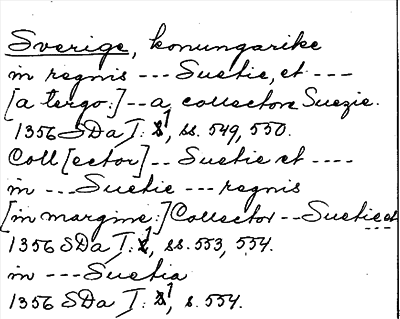 Sverige, konungarike
in regnis --- Suetie, et ---
[a tergo:] -- a collectore Suezie.
1356 SDa I: 1, ss. 549, 550.
Coll[ector] -- Suetie et ----
in --- Suetie --- regnis
[in margine:] Collector -- Suetie et
1356 SDa I: 1, ss. 553, 554.
in --- Suetia
1356 SDa I: 1, s. 554.